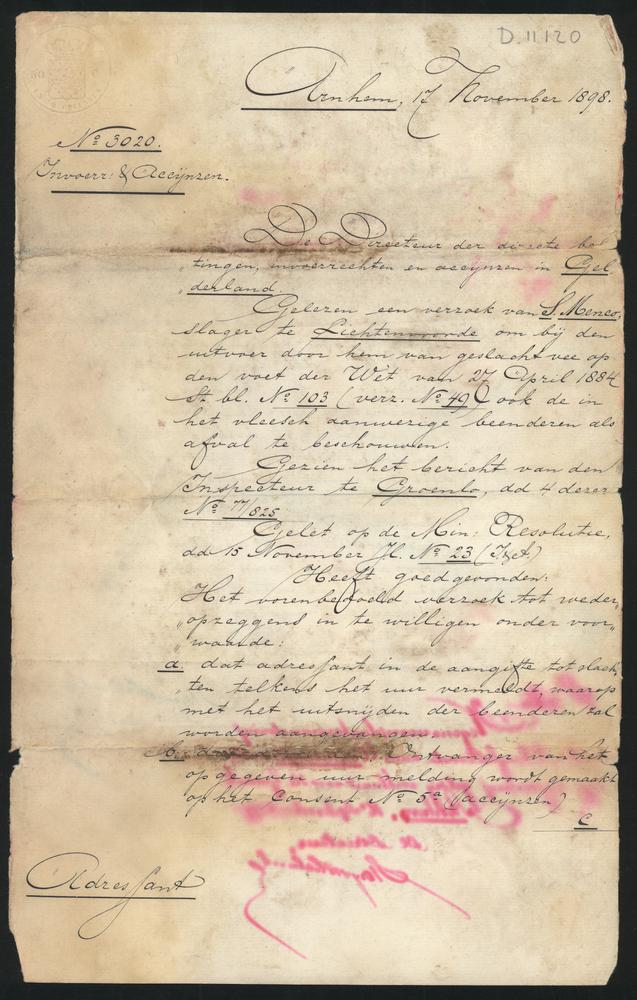 D. 11120
Arnhem, 17 November 1898.
No 3020.
Invoerr: & Accijnzen.
De Directeur der directe bel
„tingen, invoerrechten en accijnzen in Gel
„derland.
Gelezen een verzoek van S. Menco,
slager te Lichtenvoorde om bij den
uitvoer door hem van geslacht vee op
den voet der Wet van 27 April 1884
St bl. No 103 (verz. No 49) ook de in
het vleesch aanwezige beenderen als
afval te beschouwen.
Gezien het bericht van den
Inspecteur te Groenlo, dd 4 dezer
No 77/825
Gelet op de Min: Resolutie,
dd 15 November Jl. No 23 (Acc.)
Heeft goedgevonden:
Het vorenbedoeld verzoek tot weder„
„opzeggens in te willigen onder voor„
„waarde:
a. dat adressant in de aangifte tot slach„
„ten telkens het uur vermeldt, waarop
met het uitsnijden der beenderen zal
worden aangevangen
b. Ontvanger van het
opgegeven uur melding wordt gemaakt
op het Consent No 5a (accijnzen)
c
Adressant